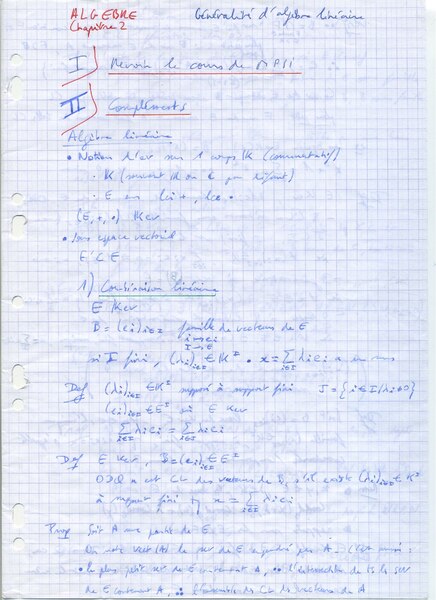 ALGEBRE Généralité d'algèbre linéaire
Chapitre 2
I) Revoir le cours de MPSI
II) Compléments
Algèbre linéaire
• Notion d'ev sur 1 corps K (commutatif)
· K (souvent R ou C par défaut)
· E ens lci +, lce •
(E,+,•) Kev
• Sous espace vectoriel
E' ⊂ E
1) Combinaison linéaire
E Kev
B = (ei)i∈I famille de vecteurs de E
i ↦ ei
I → E
si I fini, (λi)i∈I ∈ K^I • x = Σ i∈I λi ei a un sens
Def (λi)i∈I ∈ K^I supposé à support fini J = {i ∈ I / λi ≠ 0}
(ei)i∈I ∈ E^I où E Kev
Σ i∈I λi ei = Σ λi ei
Def E Kev, B = (ei)i∈I ∈ E^I
ODQ x est CL des vecteurs de B, s'il existe (λi)i∈I ∈ K^I
à support fini tq x = Σ i∈I λi ei
Prop Soit A une partie de E.
On note Vect(A) le sev de E engendré par A. C'est aussi :
• le plus petit sev de E contenant A, ∴ l'intersection de ts les sev
de E contenant A, ∴ l'ensemble des CL des vecteurs de A